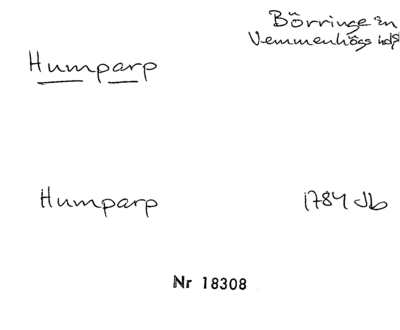 Börringe sn
Vemmenhögs hd
Humparp
Humparp 1784 Jb
Nr 18308